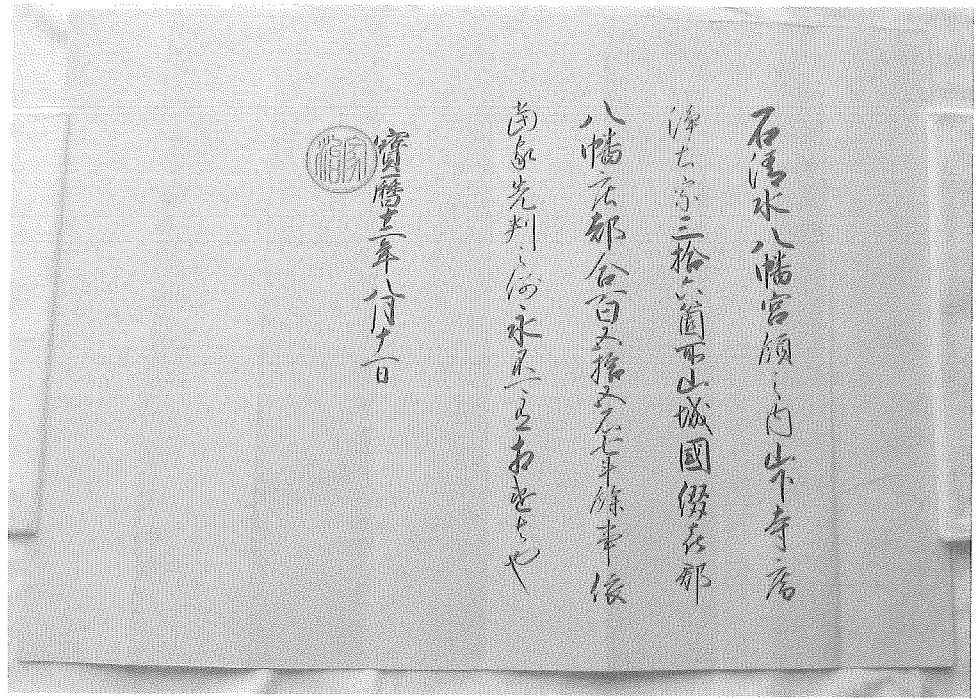 石清水八幡宮領之内山下寺庵
浄土宗三拾六箇所山城國綴喜郡
八幡庄都合百五拾五石七斗餘事依
當家先判之例永不可有相違者也
寶曆十二年八月十一日
家治